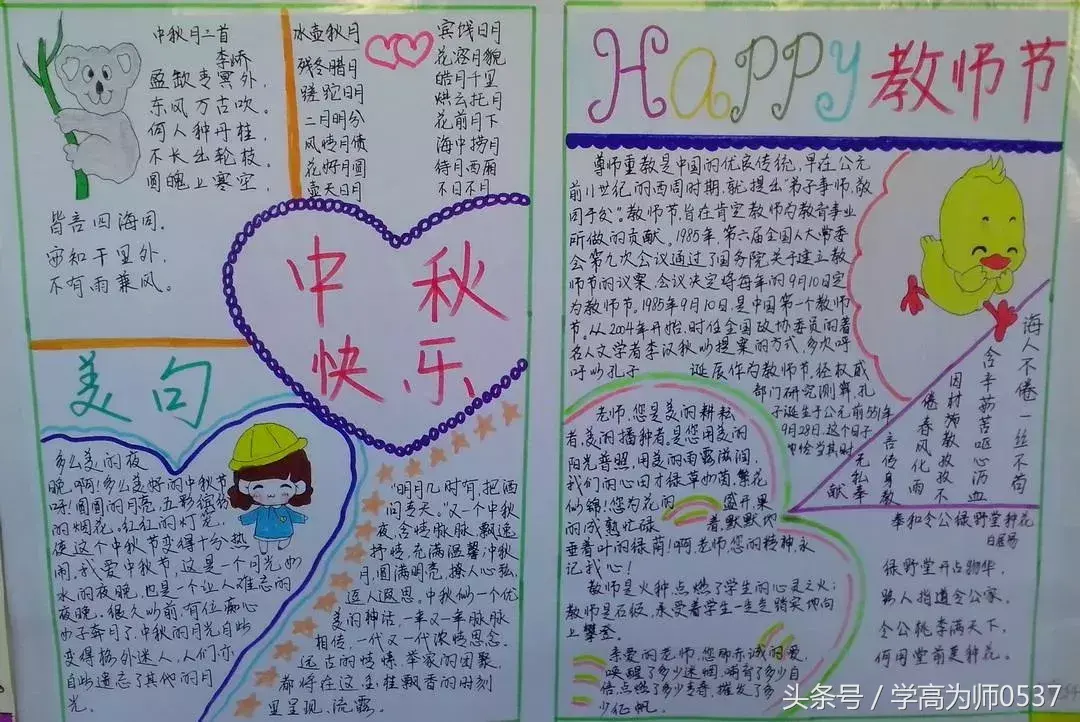 中秋月二首
李峤
盈缺青冥外，
东风万古吹。
何人种丹桂，
不长出轮枝。
圆魄上寒空，
皆言四海同。
安知千里外，
不有雨兼风。
水壶秋月
残冬腊月
蹉跎日月
二月明分
风情月债
花好月圆
壶天日月
宾饯日月
花容月貌
皓月千里
烘云托月
花前月下
海中捞月
待月西厢
不日不月
中秋
快乐
美句
多么美的夜
晚啊！多么美好的中秋节
呀！圆圆的月亮，五彩缤纷
的烟花，红红的灯笼，
使这个中秋节变得十分热
闹。我爱中秋节，这是一个月光如
水的夜晚，也是一个让人难忘的
夜晚。很久以前，有位痴心
女子奔月了，中秋的月光自此
变得格外迷人，人们亦
自此遗忘了其他的月
光。
"明月几时有，把酒
问青天。"又一个中秋
夜，含情脉脉，飘逸
抒情，充满温馨，中秋
月，圆满明亮，撩人心弦，
逗人遐思。中秋似一个优
美的神话，一年又一年脉脉
相传，一代又一代浓情思念。
远古的情愫，举家的团聚，
都将在这金桂飘香的时刻
里呈现、流露。
HAPPY 教师节
尊师重教是中国的优良传统，早在公元
前11世纪的西周时期，就提出"弟子事师，敬
同于父"。教师节，旨在肯定教师为教育事业
所做的贡献。1985年，第六届全国人大常委
会第九次会议通过了国务院关于建立教
师节的议案，会议决定将每年的9月10日定
为教师节。1985年9月10日，是中国第一个教师
节。从2004年开始，时任全国政协委员的著
名人文学者李汉秋以提案的方式，多次呼
吁以孔子 诞辰作为教师节，经权威
部门研究测算，孔
子诞生于公元前551年
9月28日，这个日子
也恰当其时
老师，您是美的耕耘
者，美的播种者。是您用美的
阳光普照，用美的雨露滋润，
我们的心田才绿草如茵，繁花
似锦！您为花的 盛开，果
的成熟忙碌 着，默默地
垂着叶的绿荫！啊，老师，您的精神，永
记我心！
教师是火种，点燃了学生的心灵之火；
教师是石级，承受着学生一步步踏实地向
上攀登。
亲爱的老师，您那赤诚的爱，
唤醒了多少迷惘，哺育了多少自
信，点燃了多少青春，催发了多
少征帆。
诲人不倦一丝不苟
含辛茹苦呕心沥血
因材施教孜孜不
倦春风化雨
言传身教
无私奉
献
奉和令公绿野堂种花
白居易
绿野堂开占物华，
路人指道令公家。
令公桃李满天下，
何用堂前更种花。
头条号 / 学高为师0537